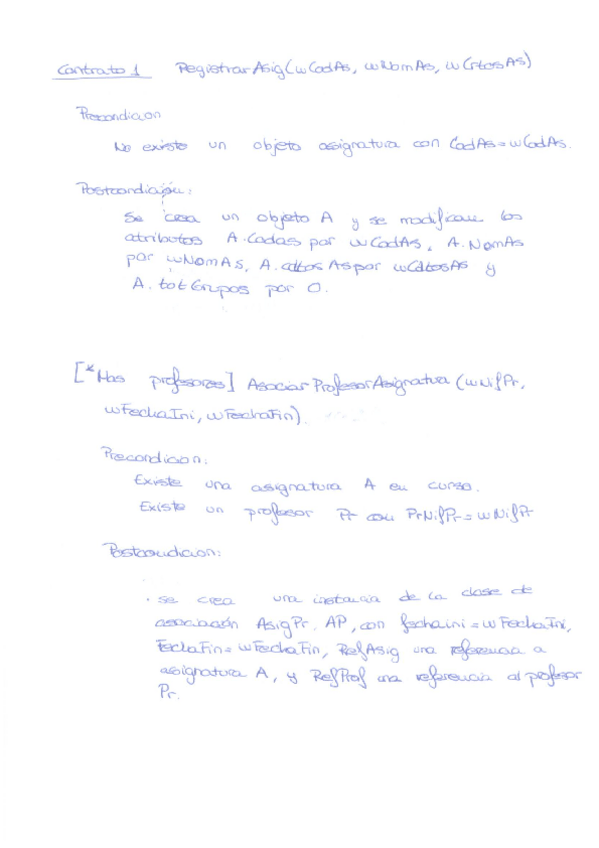 Contrato 1 RegistrarAsig(wCodAs, wNomAs, wCrtosAs)
Precondicion
No existe un objeto asignatura con CodAs=wCodAs.
Postcondición:
Se crea un objeto A y se modifican los
atributos A.Codas por wCodAs, A.NomAs
por wNomAs, A.cdtosAs por wCdtosAs y
A.totGrupos por 0.
[*Mas profesores] AsociarProfesorAsignatura (wNifPr,
wFechaIni, wFechaFin).
Precondicion:
Existe una asignatura A en curso.
Existe un profesor Pr con PrNifPr=wNifPr
Postcondicion:
. se crea una instancia de la clase de
asociación AsigPr. AP, con fechaini=wFechaIni,
FechaFin=wFechaFin, RefAsig una referencia a
asignatura A, y RefProf una referencia al profesor
Pr.